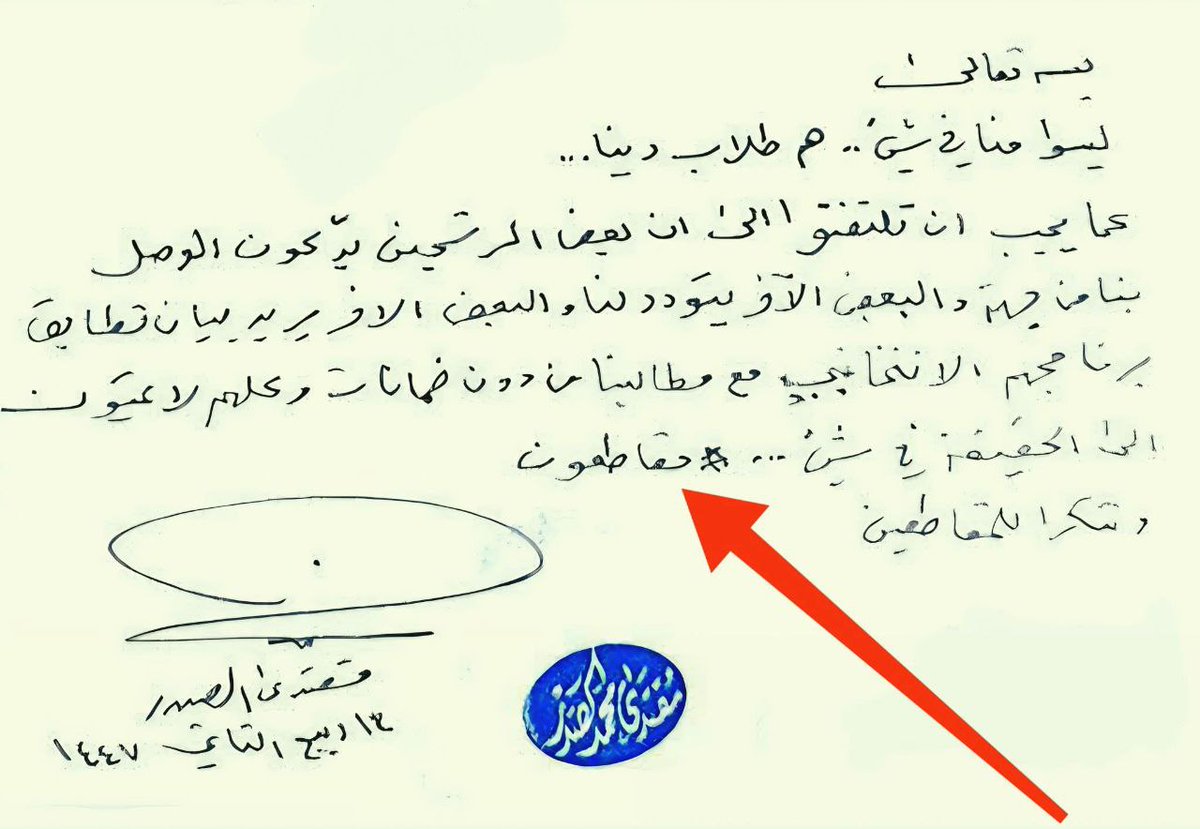 بسمه تعالى
ليسوا منا في شيء.. هم طلاب دنيا...
كما يجب ان تلتفتوا الى ان بعض المرشحين يدّعون الوصل
بنا من جهة والبعض الآخر يتودد لنا والبعض الاخر يريد بيان تطابق
برنامجهم الانتخابي مع مطالبنا من دون ضمانات وكلهم لا يمتّون
الى الحقيقة في شيء ... #مقاطعون
وشكرا للمقاطعين
مقتدى الصدر
١٣ ربيع الثاني ١٤٤٧
مقتدى محمد الصدر